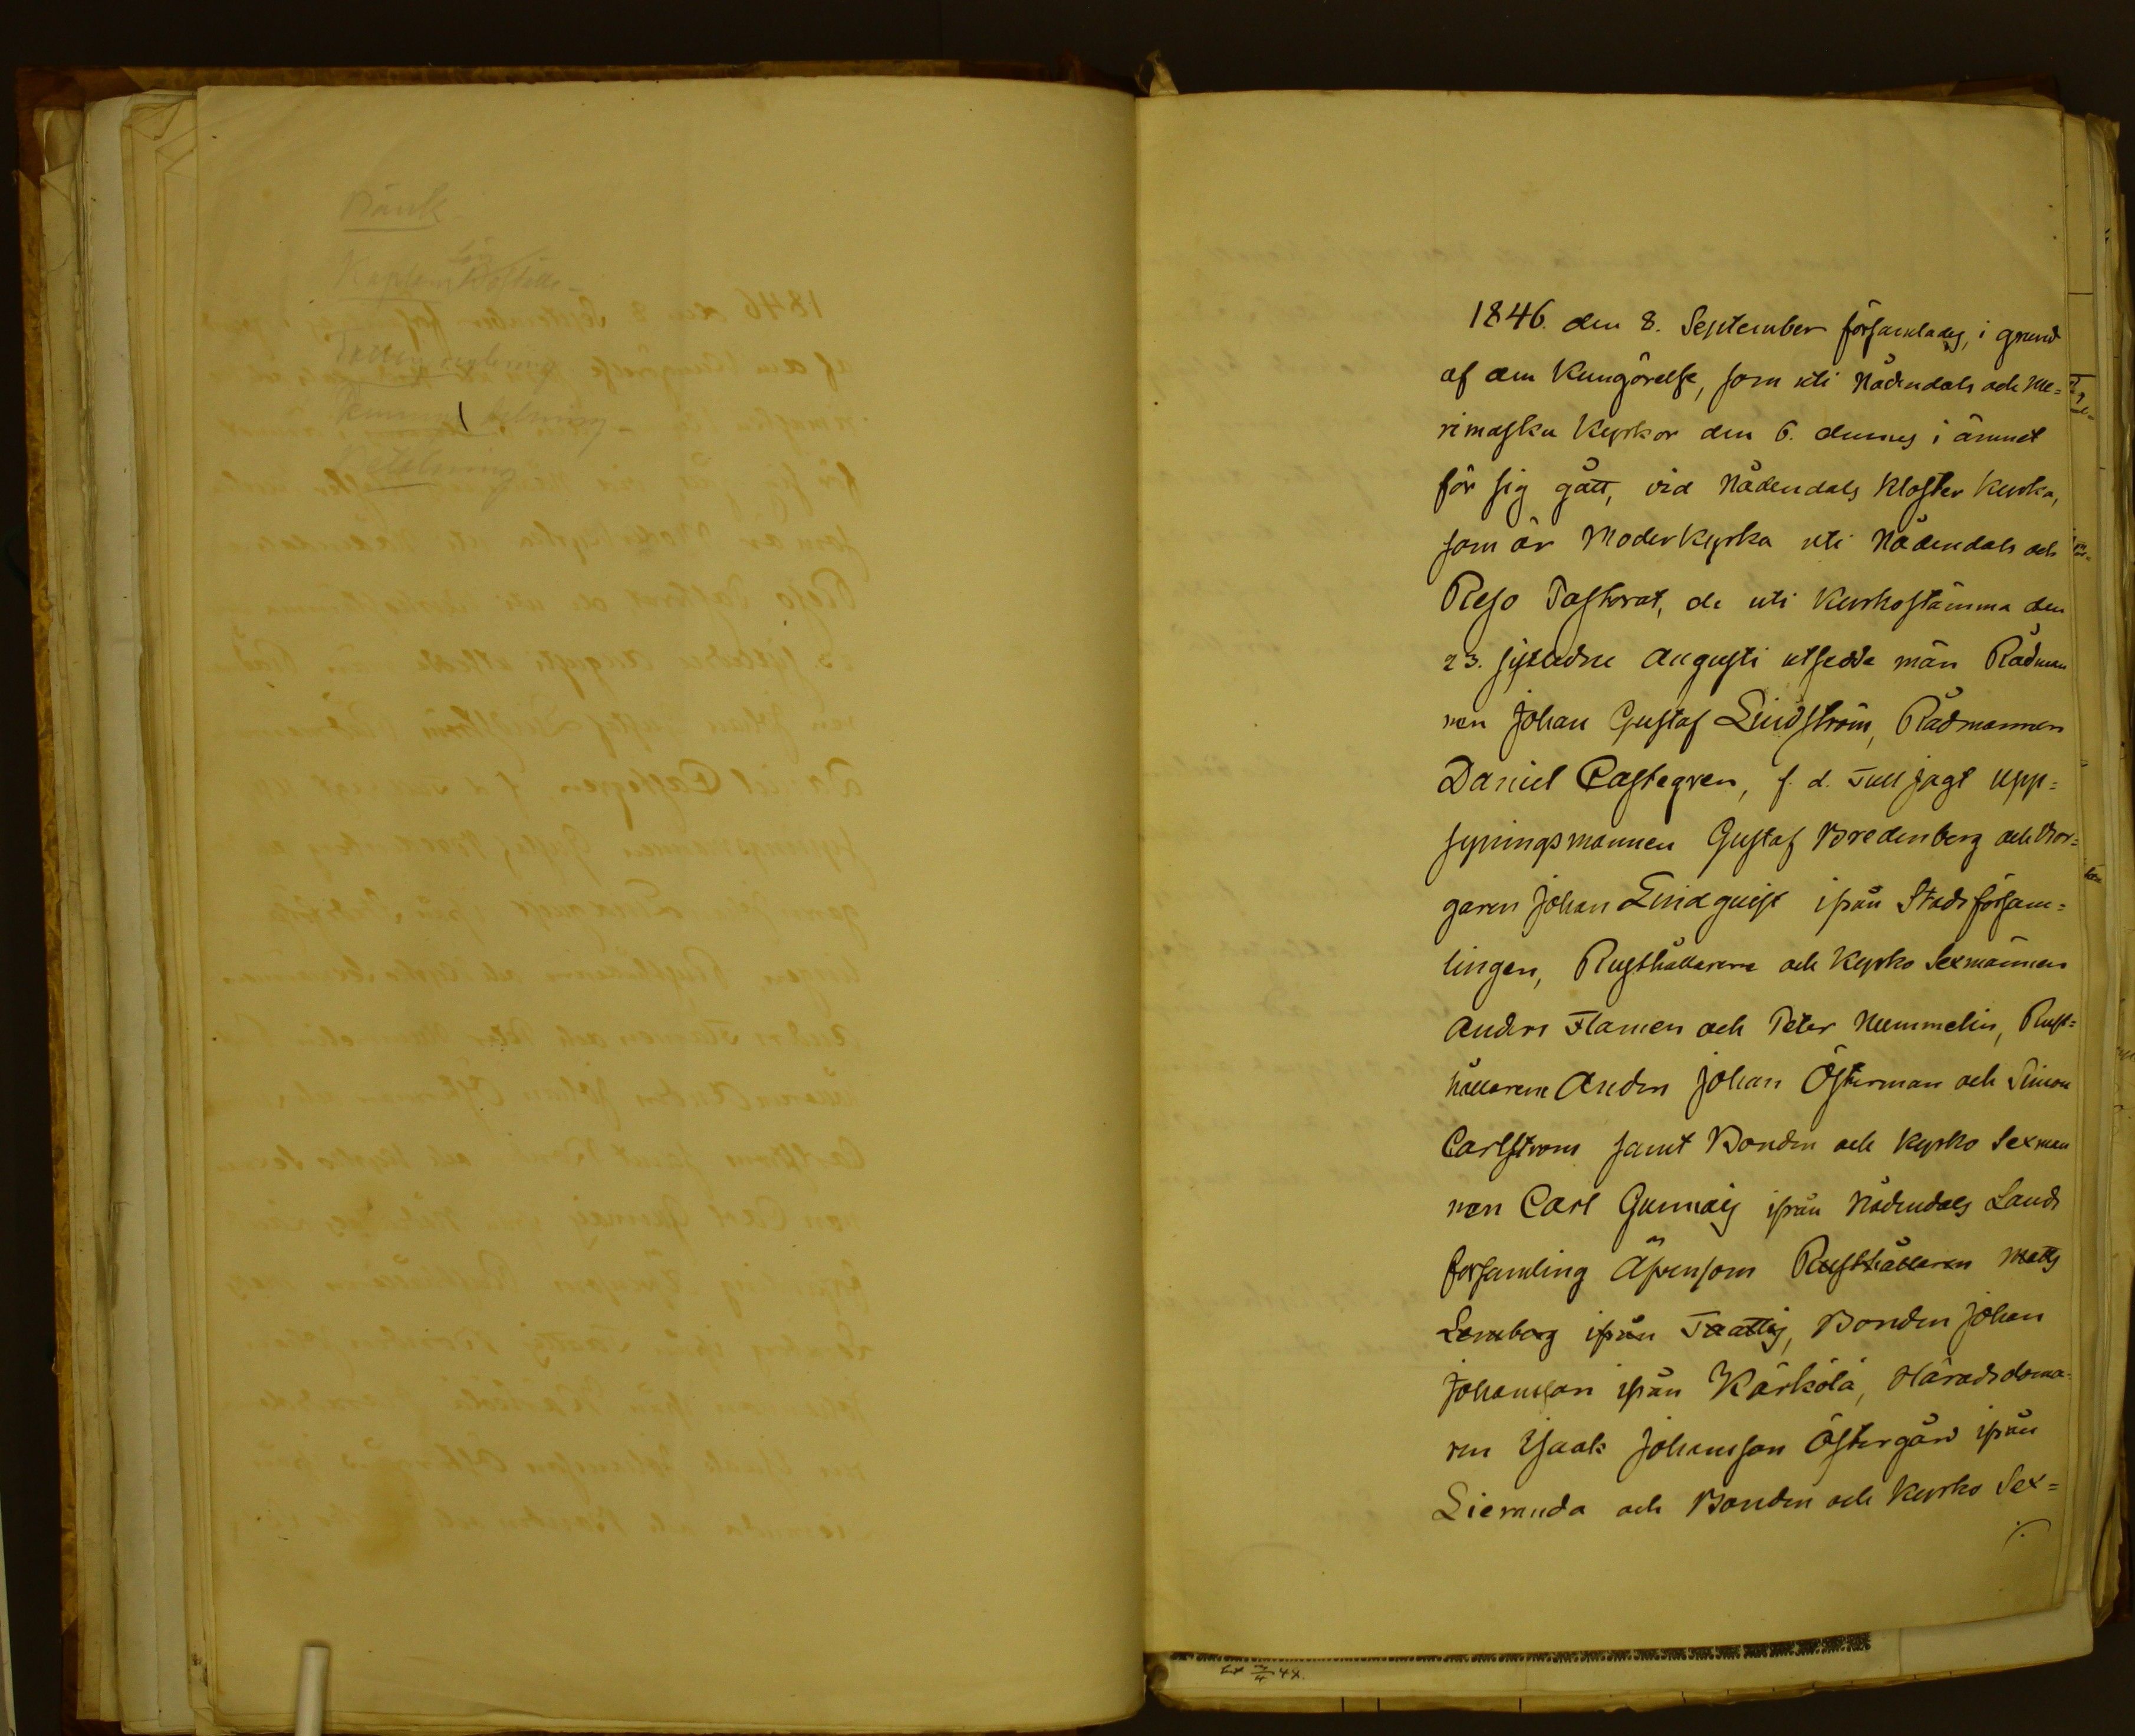 Bänk
1846. den 8. September församlades, i grund
af den Kungörelse, som uti Nådendals och Me=
rimasku Kyrkor den 6. dennes i ämnet
för sig gått, vid Nådendals Kloster Kyrka,
som är Moderkyrka uti Nådendals och
Reso Pastorat, de uti Kyrkostämma den
23. sistledne Augusti utsedde män Rådman
nen Johan Gustaf Lindström, Rådmannen
Daniel Castegren, f. d. Tull jagt Upp=
syningsmannen Gustaf Bredenberg och Bor=
garen Johan Lindquist ifrån Stads församlingen=
lingen, Rusthållarene och Kyrko Sexmännen
Anders Flamen och Peter Nummelin, Rust=
hållarene Anders Johan Österman och Simon
Carlstrom samt Bonden och Kyrko Sexman
nen Carl Gunnais ifrån Nådendals Lands
församling Äfvensom Rusthållaren Matts
Lemberg ifrån Taattis, Bonden Johan
Johansson ifrån Kärkölä, Häradsdoma=
ren Isaak Johansson Östergård ifrån
Lieranda och Bonden och Kyrko Sex=
./.